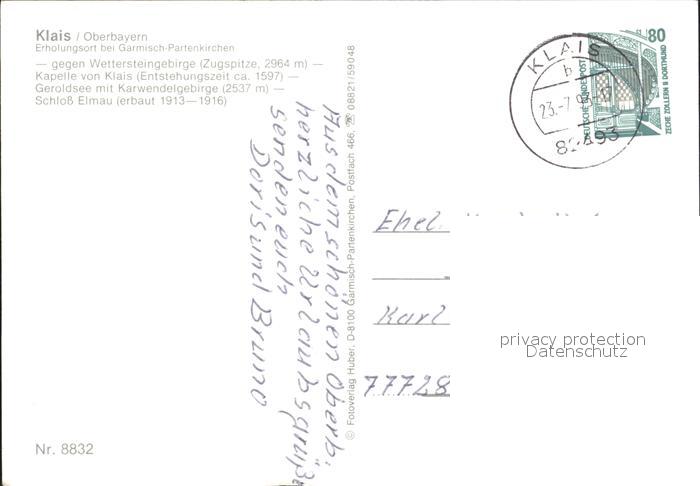 Klais / Oberbayern
Erholungsort bei Garmisch-Partenkirchen
— gegen Wettersteingebirge (Zugspitze, 2964 m) —
Kapelle von Klais (Entstehungszeit ca. 1597) —
Geroldsee mit Karwendelgebirge (2537 m) —
Schloß Elmau (erbaut 1913—1916)
Aus dem schönen Oberb.
herzliche Urlaubsgrüße
senden euch
Doris und Bruno
Nr. 8832
© Fotoverlag Huber, D-8100 Garmisch-Partenkirchen, Postfach 466, ☏ 08821/59048
KLAIS
b
23.-7.
80
DEUTSCHE BUNDESPOST
ZECHE ZOLLERN II DORTMUND
Ehel.
Karl
77728
privacy protection
Datenschutz